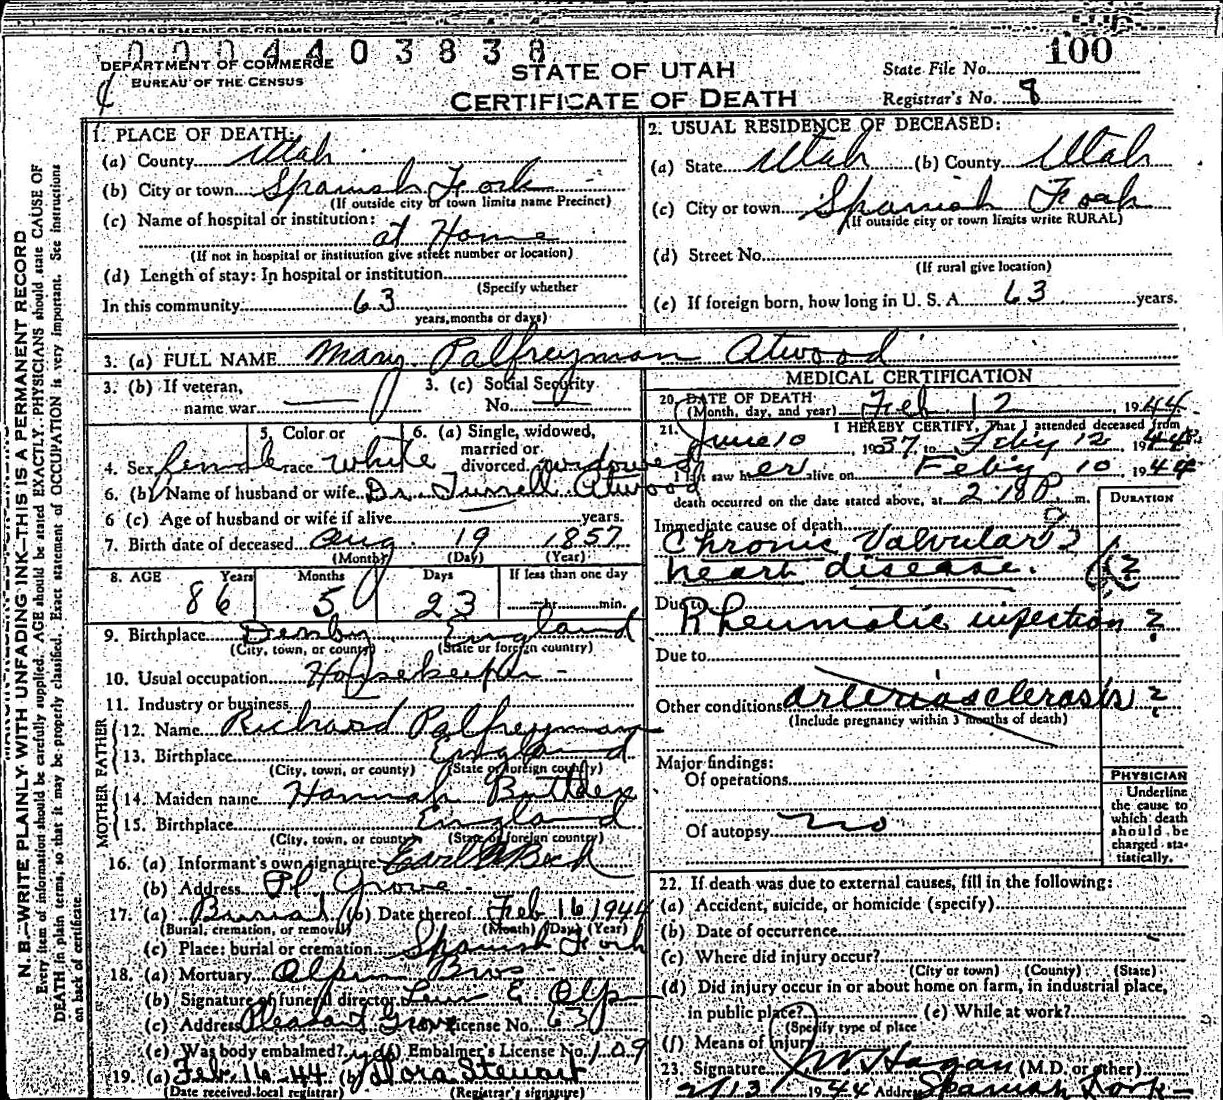 DEPARTMENT OF COMMERCE
0 0 0 4 4 0 3 8 3 8
DEPARTMENT OF COMMERCE
BUREAU OF THE CENSUS
STATE OF UTAH
CERTIFICATE OF DEATH
100
State File No.
Registrar's No. 8
N. B.—WRITE PLAINLY WITH UNFADING INK—THIS IS A PERMANENT RECORD
Every item of information should be carefully supplied. AGE should be stated EXACTLY. PHYSICIANS should state CAUSE OF
DEATH in plain terms, so that it may be properly classified. Exact statement of OCCUPATION is very important. See instructions
on back of certificate.
1. PLACE OF DEATH:
(a) County Utah
(b) City or town Spanish Fork
(If outside city or town limits name Precinct)
(c) Name of hospital or institution:
at Home
(If not in hospital or institution give street number or location)
(d) Length of stay: In hospital or institution
(Specify whether
In this community 63
years, months or days)
2. USUAL RESIDENCE OF DECEASED:
(a) State Utah (b) County Utah
(c) City or town Spanish Fork
(If outside city or town limits write RURAL)
(d) Street No.
(If rural give location)
(e) If foreign born, how long in U. S. A. 63 years.
3. (a) FULL NAME Mary Palfreyman Atwood
3. (b) If veteran,
name war
3. (c) Social Security
No.
4. Sex female
5. Color or
race white
6. (a) Single, widowed,
married or
divorced widowed
6. (b) Name of husband or wife Dr. Turrell Atwood
6 (c) Age of husband or wife if alive years.
7. Birth date of deceased Aug. 19 1857
(Month) (Day) (Year)
8. AGE Years Months Days If less than one day
86 5 23 hr. min.
9. Birthplace Denby England
(City, town, or county) (State or foreign country)
10. Usual occupation Housekeeper
11. Industry or business
FATHER
12. Name Richard Palfreyman
13. Birthplace England
(City, town, or county) (State or foreign country)
MOTHER
14. Maiden name Hannah
15. Birthplace England
(City, town, or county) (State or foreign country)
16. (a) Informant's own signature Earl Beck
(b) Address Pl. Grove
17. (a) Burial (b) Date thereof Feb 16 1944
(Burial, cremation, or removal) (Month) (Day) (Year)
(c) Place: burial or cremation Spanish Fork
18. (a) Mortuary Olpin Bros
(b) Signature of funeral director E Olpin
(c) Address Pleasant Grove License No. 63
(e) Was body embalmed? yes (f) Embalmer's License No. 109
19. (a) Feb. 16-44 (b) Nora Stewart
(Date received local registrar) (Registrar's signature)
MEDICAL CERTIFICATION
20. DATE OF DEATH
(Month, day, and year) Feb 12 1944
21. I HEREBY CERTIFY, That I attended deceased from
June 10 1937, to Feby 12 1944
I last saw her alive on Feby 10 1944
death occurred on the date stated above, at 2:18 P. m.
DURATION
Immediate cause of death
Chronic Valvular
heart disease. ?
Due to
Rheumatic infection ?
Due to
Other conditions arteriosclerosis ?
(Include pregnancy within 3 months of death)
Major findings:
Of operations
Of autopsy no
PHYSICIAN
Underline
the cause to
which death
should be
charged sta-
tistically.
22. If death was due to external causes, fill in the following:
(a) Accident, suicide, or homicide (specify)
(b) Date of occurrence
(c) Where did injury occur?
(City or town) (County) (State)
(d) Did injury occur in or about home on farm, in industrial place,
in public place? (e) While at work?
(Specify type of place
(f) Means of Injury
23. Signature Hagan (M.D. or other)
2/13 1944 Address Spanish Fork